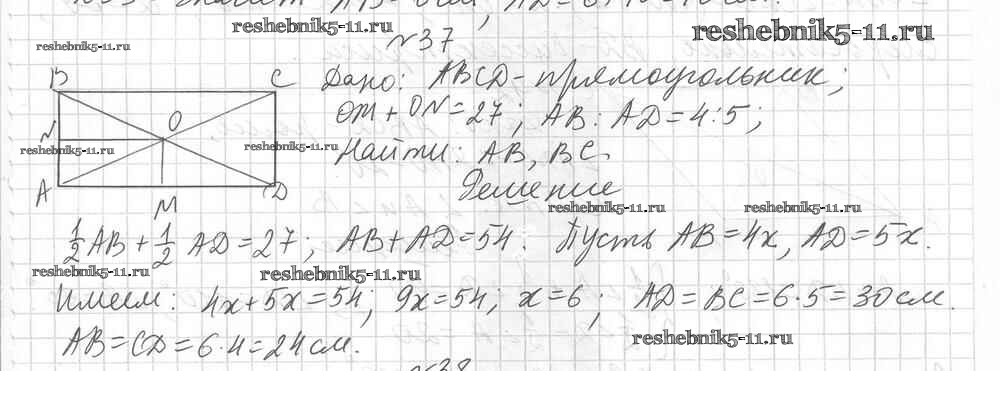 reshebnik5-11.ru
reshebnik5-11.ru
reshebnik5-11.ru
№37
B C
O
N
A M D
reshebnik5-11.ru
reshebnik5-11.ru
Дано: ABCD - прямоугольник;
OM + ON = 27; AB : AD = 4:5;
Найти: AB, BC.
Решение
reshebnik5-11.ru
reshebnik5-11.ru
1/2 AB + 1/2 AD = 27; AB + AD = 54. Пусть AB = 4x, AD = 5x.
reshebnik5-11.ru
reshebnik5-11.ru
Имеем: 4x + 5x = 54; 9x = 54; x = 6; AD = BC = 6·5 = 30 см.
AB = CD = 6·4 = 24 см.
reshebnik5-11.ru
№38